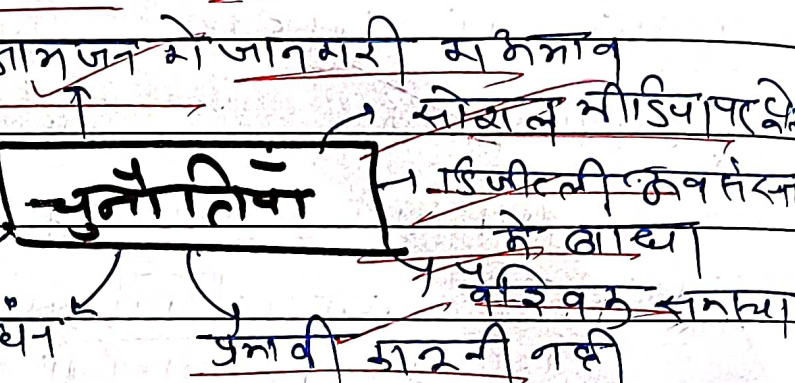 आमजन को जानकारी का अभाव
सोशल मीडिया पर
चुनौतियाँ
डिजीटली
में बाधा
वैश्विक समस्या
प्रभावी कानून नहीं